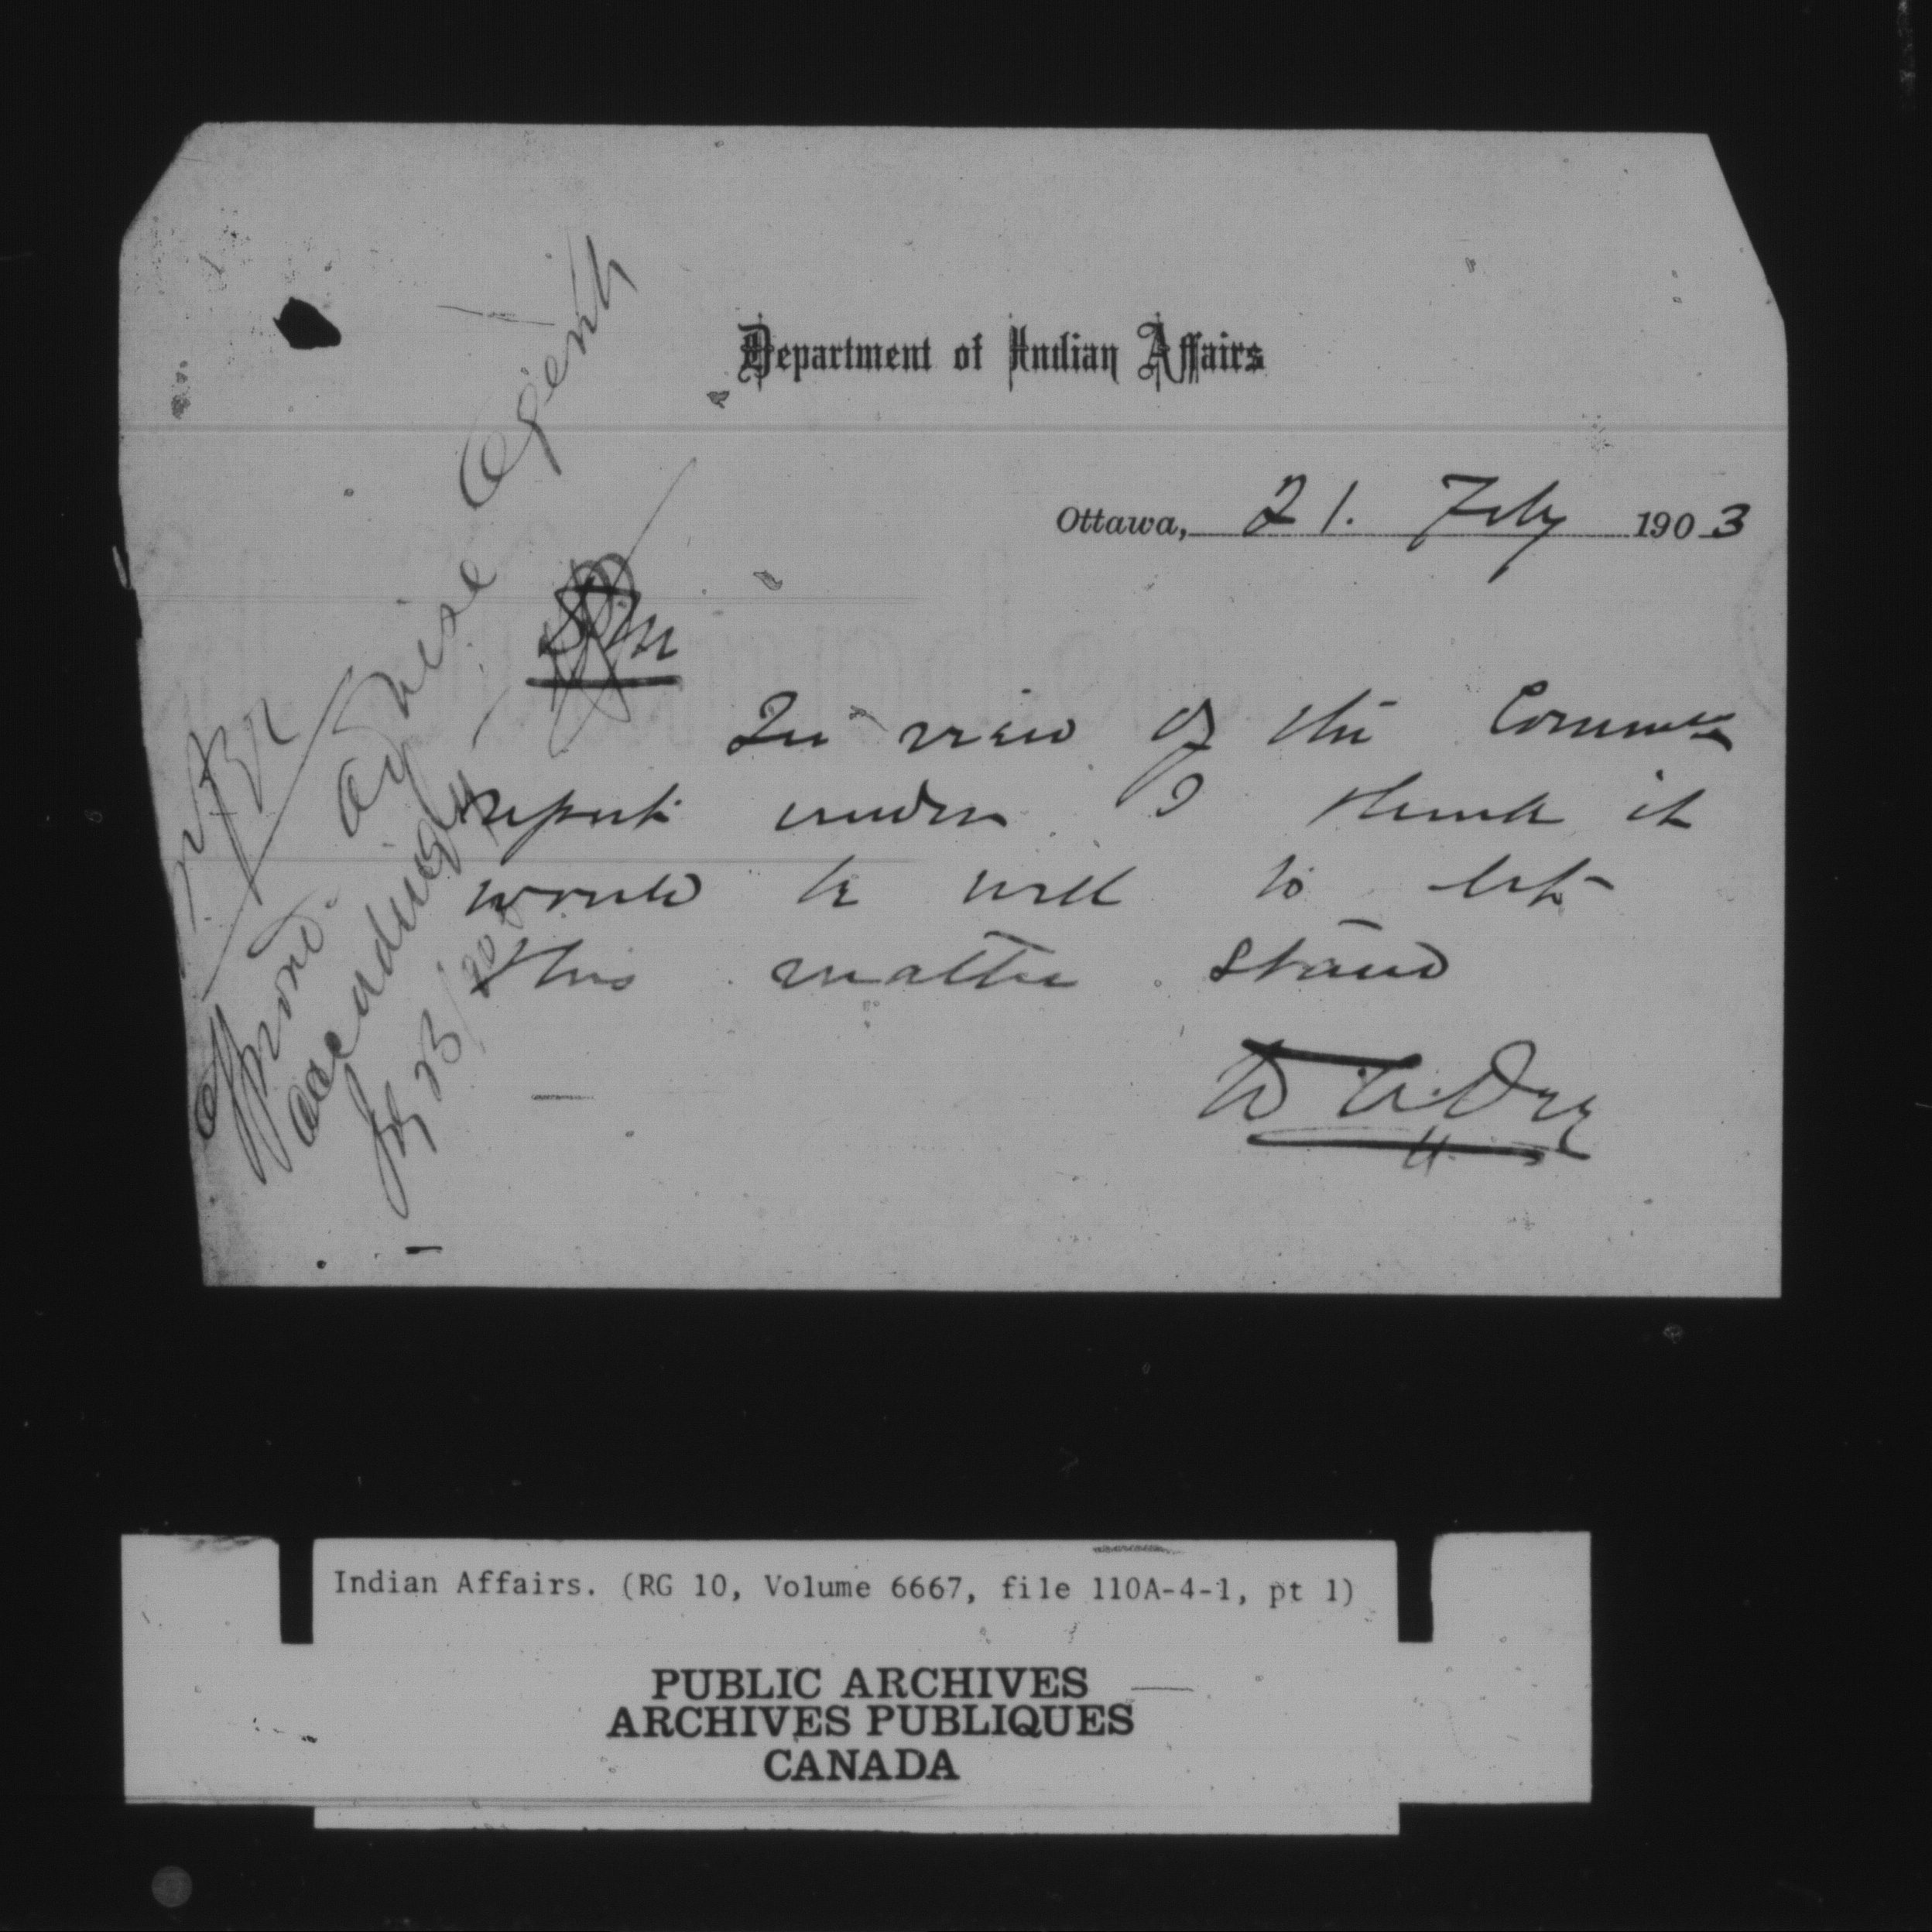 Department of Indian Affairs
Ottawa, 21. Feby 1903
In view of the Commrs
report under I think it
would be well to let
this matter stand
W A. Orr
Approved.
Advise Agent
accordingly
Fby 23/
Indian Affairs. (RG 10, Volume 6667, file 110A-4-1, pt 1)
PUBLIC ARCHIVES
ARCHIVES PUBLIQUES
CANADA